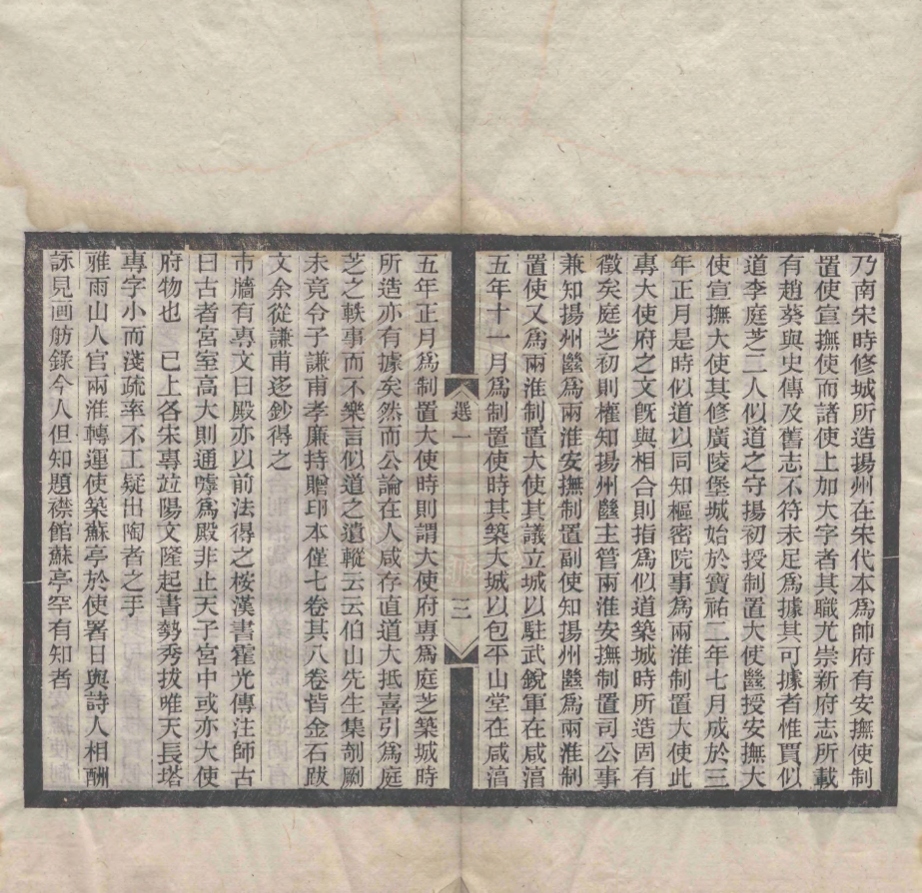 乃南宋時修城所造揚州在宋代本為帥府有安撫使制
置使宣撫使而諸使上加大字者其職尤崇新府志所載
有趙葵與史傳及舊志不符未足為據其可據者惟賈似
道李庭芝二人似道之守揚初授制置大使繼授安撫大
使宣撫大使其修廣陵堡城始於寶祐二年七月成於三
年正月是時似道以同知樞密院事為兩淮制置大使此
專大使府之文旣與相合則指為似道築城時所造固有
徵矣庭芝初則權知揚州繼主管兩淮安撫制置司公事
兼知揚州繼為兩淮安撫制置副使知揚州繼為兩淮制
置使又為兩淮制置大使其議立城以駐武銳軍在咸淳
五年十一月為制置使時其築大城以包平山堂在咸淳
選一
三
五年正月為制置大使時則謂大使府專為庭芝築城時
所造亦有據矣然而公論在人咸存直道大抵喜引為庭
芝之軼事而不樂言似道之遺蹤云云伯山先生集剞劂
未竟令子謙甫孝廉持贈邱本僅七卷其八卷皆金石跋
文余從謙甫迻鈔得之
市牆有專文曰殿亦以前法得之桉漢書霍光傳注師古
曰古者宮室高大則通嘑為殿非止天子宮中或亦大使
府物也　已上各宋專竝陽文隆起書勢秀拔唯天長塔
專字小而淺疏率不工疑出陶者之手
雅雨山人官兩淮轉運使築蘇亭於使署日與詩人相酬
詠見画舫錄今人但知題襟館蘇亭罕有知者